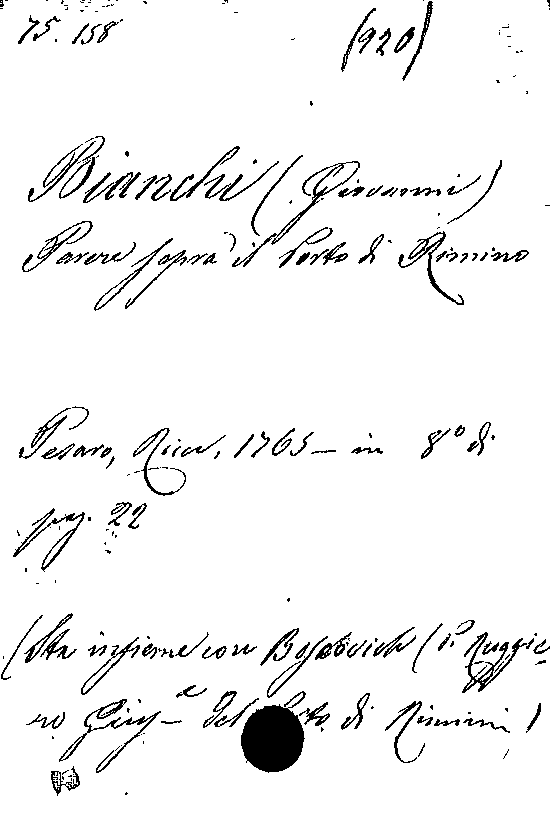 75. 158 (920)
Bianchi (Giovanni)
Parere sopra il Porto di Rimino
Pesaro, 1765 — in 8º di
pag. 22
(Sta insieme con Boscovich (P. Ruggie-
ro di Rimini)